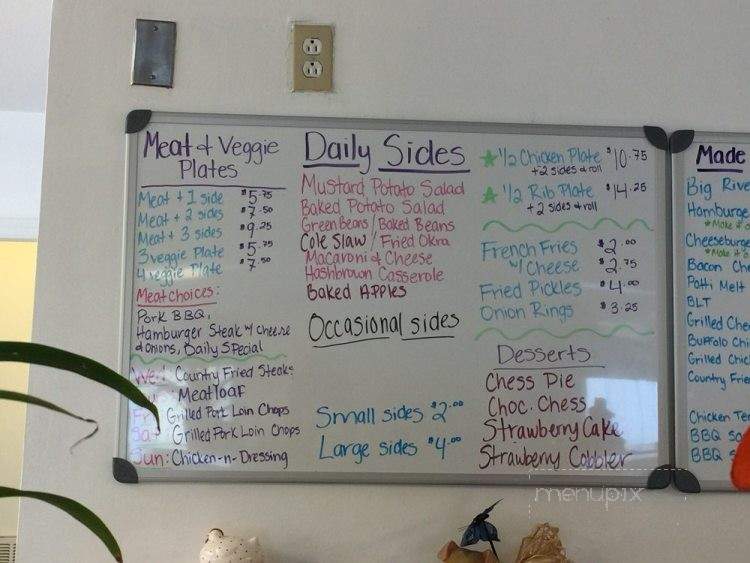 Meat & Veggie
Plates
Meat + 1 side $5.75
Meat + 2 sides $7.50
Meat + 3 sides $9.25
3 veggie Plate $5.75
4 veggie Plate $7.50
Meat choices:
Pork BBQ,
Hamburger Steak w/ Cheese
& Onions, Daily Special
Wed: Country Fried Steak
Meatloaf
Fri: Grilled Pork Loin Chops
Sat: Grilled Pork Loin Chops
Sun: Chicken-n-Dressing
Daily Sides
Mustard Potato Salad
Baked Potato Salad
Green Beans / Baked Beans
Cole Slaw / Fried Okra
Macaroni & Cheese
Hashbrown Casserole
Baked Apples
Occasional sides
Small sides $2.00
Large sides $4.00
1/2 Chicken Plate $10.75
+ 2 sides & roll
1/2 Rib Plate $14.25
+ 2 sides & roll
French Fries $2.00
w/ Cheese $2.75
Fried Pickles $4.00
Onion Rings $3.25
Desserts
Chess Pie
Choc. Chess
Strawberry Cake
Strawberry Cobbler
Made
Big Rive
Hamburge
*Make it a
Cheeseburge
*Make it a
Bacon Che
Patti Melt
BLT
Grilled Chee
Buffalo Chi
Grilled Chic
Country Frie
Chicken Ten
BBQ Sa
BBQ S
menupix